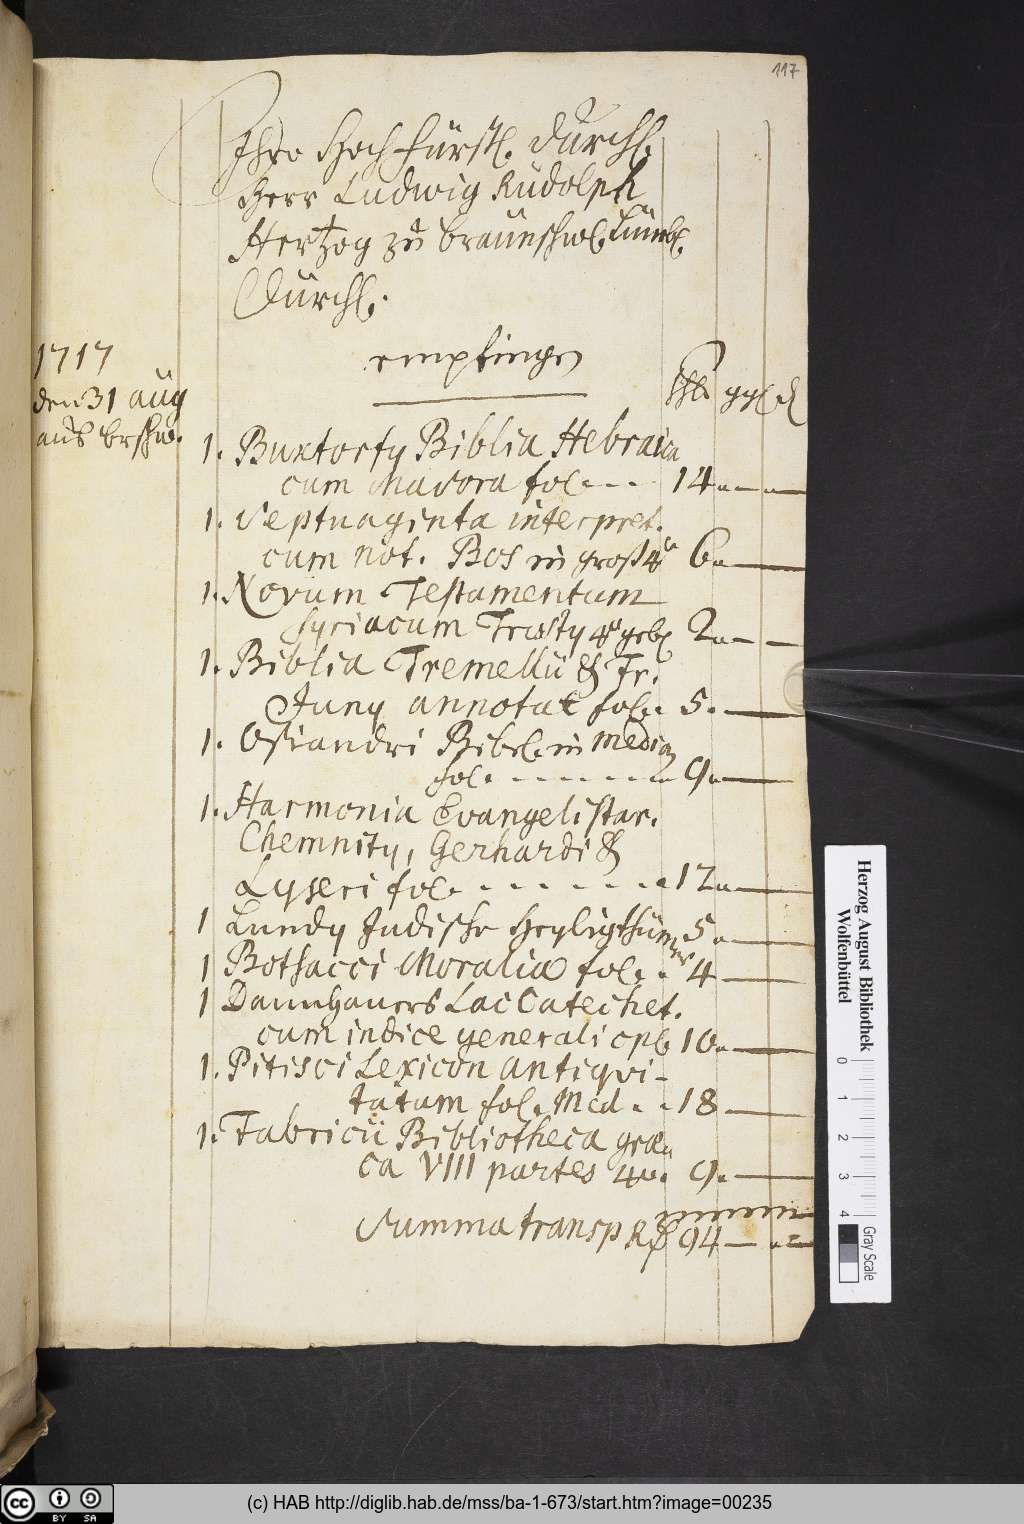 117
Ihro HochFürstl. Durchl.
Herr Ludwig Rudolph
Hertzog zu braunschw. Lünb.
Durchl.
1717
den 31 aug
aus brschw.
empfingen
thl. ggl. d
1. Buxtorfy Biblia Hebraica
cum Masora fol. 14
1. Septuaginta interpret.
cum not. Bos in groß 4to 6
1. Novum Testamentum
Syriacum Trosty 4to geb. 2
1. Biblia Tremellii & Fr.
Juny annotat fol. 5
1. Osiandri Bibel in median
fol. 9
1. Harmonia Evangelistar.
Chemnity, Gerhardi &
Lyseri fol. 12
1 Lundy Judische Heyligthümer 5
1 Botsacci Moralia fol. 4
1 Dannhauers Lac Catechet.
cum indice generali cpl. 10
1. Pitisci Lexicon antiqui-
tatum fol. Med. 18
1. Fabricii Bibliotheca græ
ca VIII partes 4to. 9
Summa transp Rß 94
Herzog August Bibliothek
Wolfenbüttel
0 1 2 3 4
Gray Scale
cc BY SA
(c) HAB http://diglib.hab.de/mss/ba-1-673/start.htm?image=00235